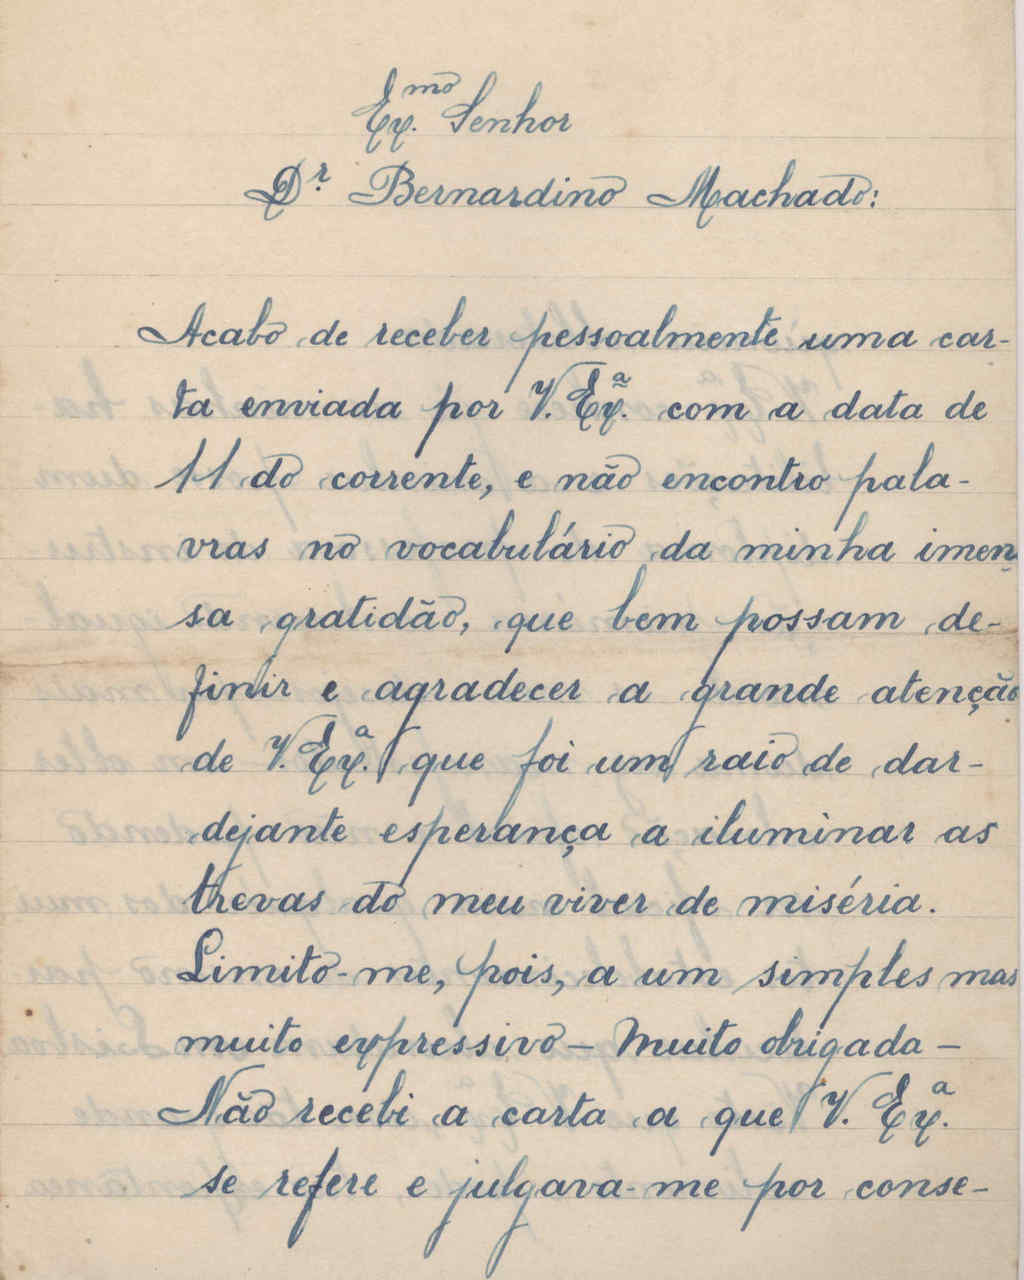 Ex.mo Senhor
Dr. Bernardino Machado:
Acabo de receber pessoalmente uma car-
ta enviada por V. Ex.ª com a data de
11 do corrente, e não encontro pala-
vras no vocabulário da minha imen
sa gratidão, que bem possam de-
finir e agradecer a grande atenção
de V. Ex.ª que foi um raio de dar-
dejante esperança a iluminar as
trevas do meu viver de miséria.
Limito-me, pois, a um simples mas
muito expressivo — Muito obrigada —
Não recebi a carta a que V. Ex.ª
se refere e julgava-me por conse-